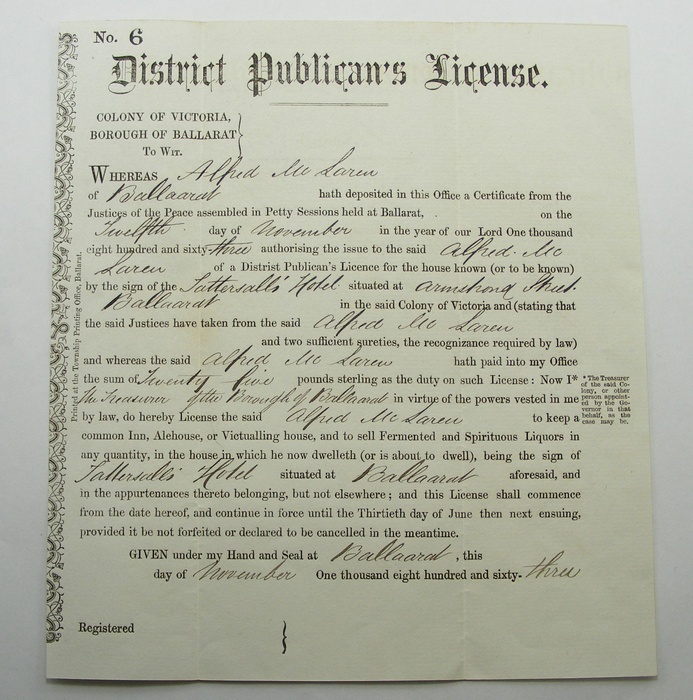 No. 6
District Publican's License.
COLONY OF VICTORIA,
BOROUGH OF BALLARAT
TO WIT.
WHEREAS Alfred Mc Laren
of Ballaarat hath deposited in this Office a Certificate from the
Justices of the Peace assembled in Petty Sessions held at Ballarat, on the
Twelfth day of November in the year of our Lord One thousand
eight hundred and sixty-three authorising the issue to the said Alfred. Mc
Laren of a District Publican's Licence for the house known (or to be known)
by the sign of the Tattersalls Hotel situated at Armstrong Street.
Ballaarat in the said Colony of Victoria and (stating that
the said Justices have taken from the said Alfred Mc Laren
and two sufficient sureties, the recognizance required by law)
and whereas the said Alfred Mc Laren hath paid into my Office
the sum of Twenty five pounds sterling as the duty on such License: Now I*
the Treasurer of the Borough of Ballaarat in virtue of the powers vested in me
by law, do hereby License the said Alfred Mc Laren to keep a
common Inn, Alehouse, or Victualling house, and to sell Fermented and Spirituous Liquors in
any quantity, in the house in which he now dwelleth (or is about to dwell), being the sign of
Tattersalls Hotel situated at Ballaarat aforesaid, and
in the appurtenances thereto belonging, but not elsewhere; and this License shall commence
from the date hereof, and continue in force until the Thirtieth day of June then next ensuing,
provided it be not forfeited or declared to be cancelled in the meantime.
GIVEN under my Hand and Seal at Ballaarat, this
day of November One thousand eight hundred and sixty-three
Registered
* The Treasurer
of the said Co-
lony, or other
person appoint-
ed by the Go-
vernor in that
behalf, as the
case may be.
Printed at the Township Printing Office, Ballarat.